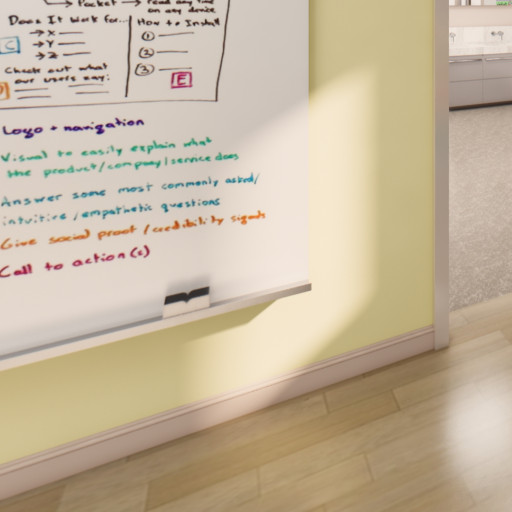 Pocket → read any time
on any device
Does It Work for...
How to Install
→ X
①
C
→ Y
②
→ Z
③
Check out what
our users say:
E
Logo + navigation
Visual to easily explain what
the product/company/service does
Answer some most commonly asked/
intuitive/empathetic questions
Give social proof/credibility signals
Call to action(s)